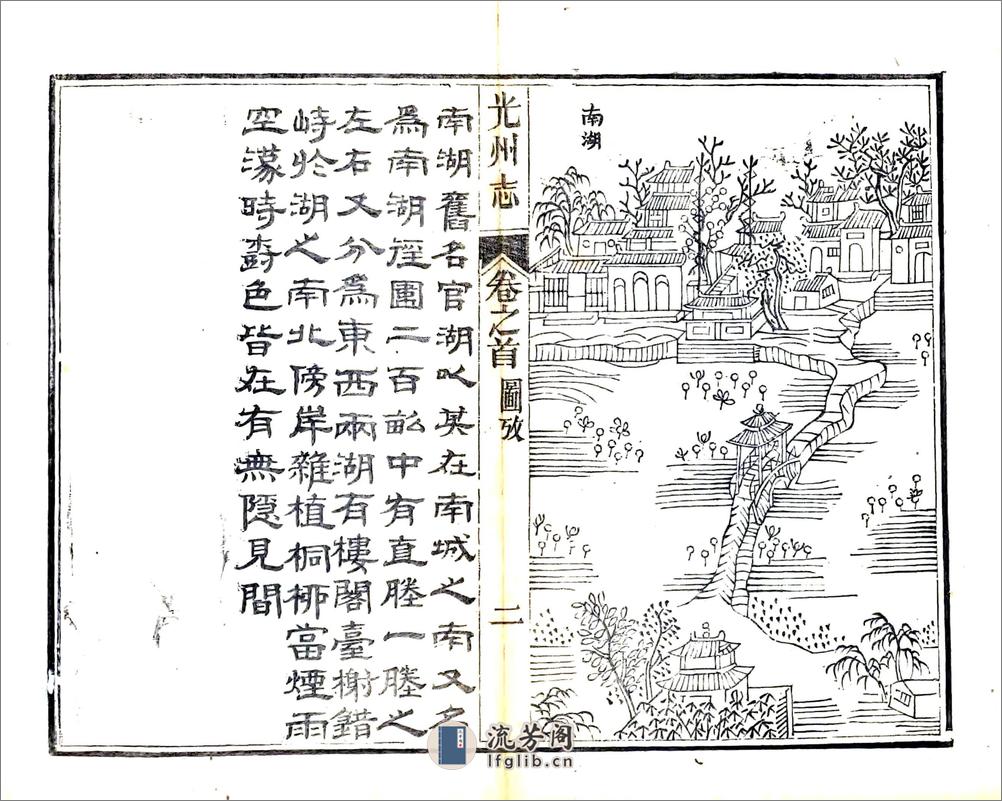 南湖
光州志
卷之首
圖攷
二
南湖舊名官湖以其在南城之南又名
爲南湖徑圍二百畝中有直塍一塍之
左右又分爲東西兩湖有樓閣臺榭錯
峙於湖之南北傍岸雜植桐柳當煙雨
空濛時樹色皆在有無隱見間
流芳阁
lfglib.cn